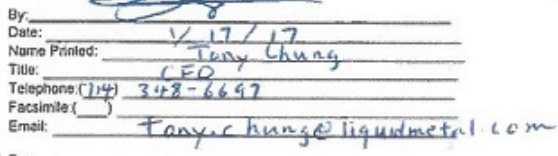 By:
Date: 1/17/17
Name Printed: Tony Chung
Title: CFO
Telephone:(714) 348-6697
Facsimile:( )
Email: Tony.chung@liquidmetal.com